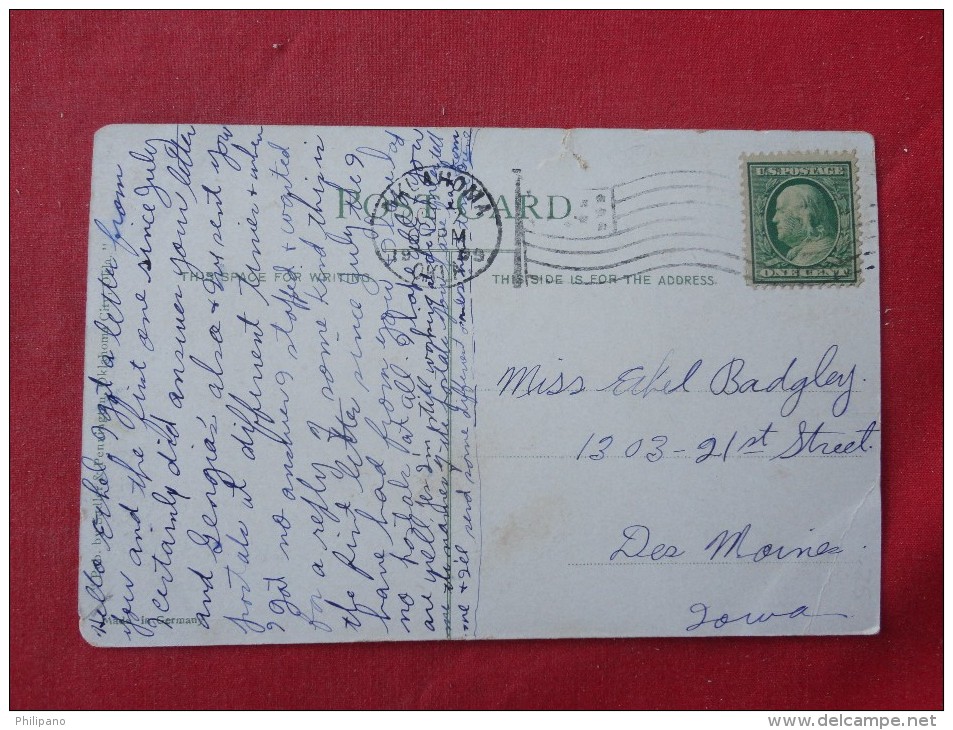 Hello Ethel, I got a letter from
you and the first one since July
I certainly did answer your letter
and Georgia's also + I've sent you
postals at different times + when
I got no answer I stopped + waited
for a reply of some kind this is
the first letter since July that I
have had from you
no postals at all. I hope all
are well. yes I'm still working
me + I'll send some different ones
Made in Germany
Oklahoma City, Okla."
POST CARD.
THIS SPACE FOR WRITING
THIS SIDE IS FOR THE ADDRESS.
OKLAHOMA
U.S. POSTAGE
ONE CENT
Miss Ethel Badgley.
1303-21st Street.
Des Moines
Iowa
Philipano
www.delcampe.net